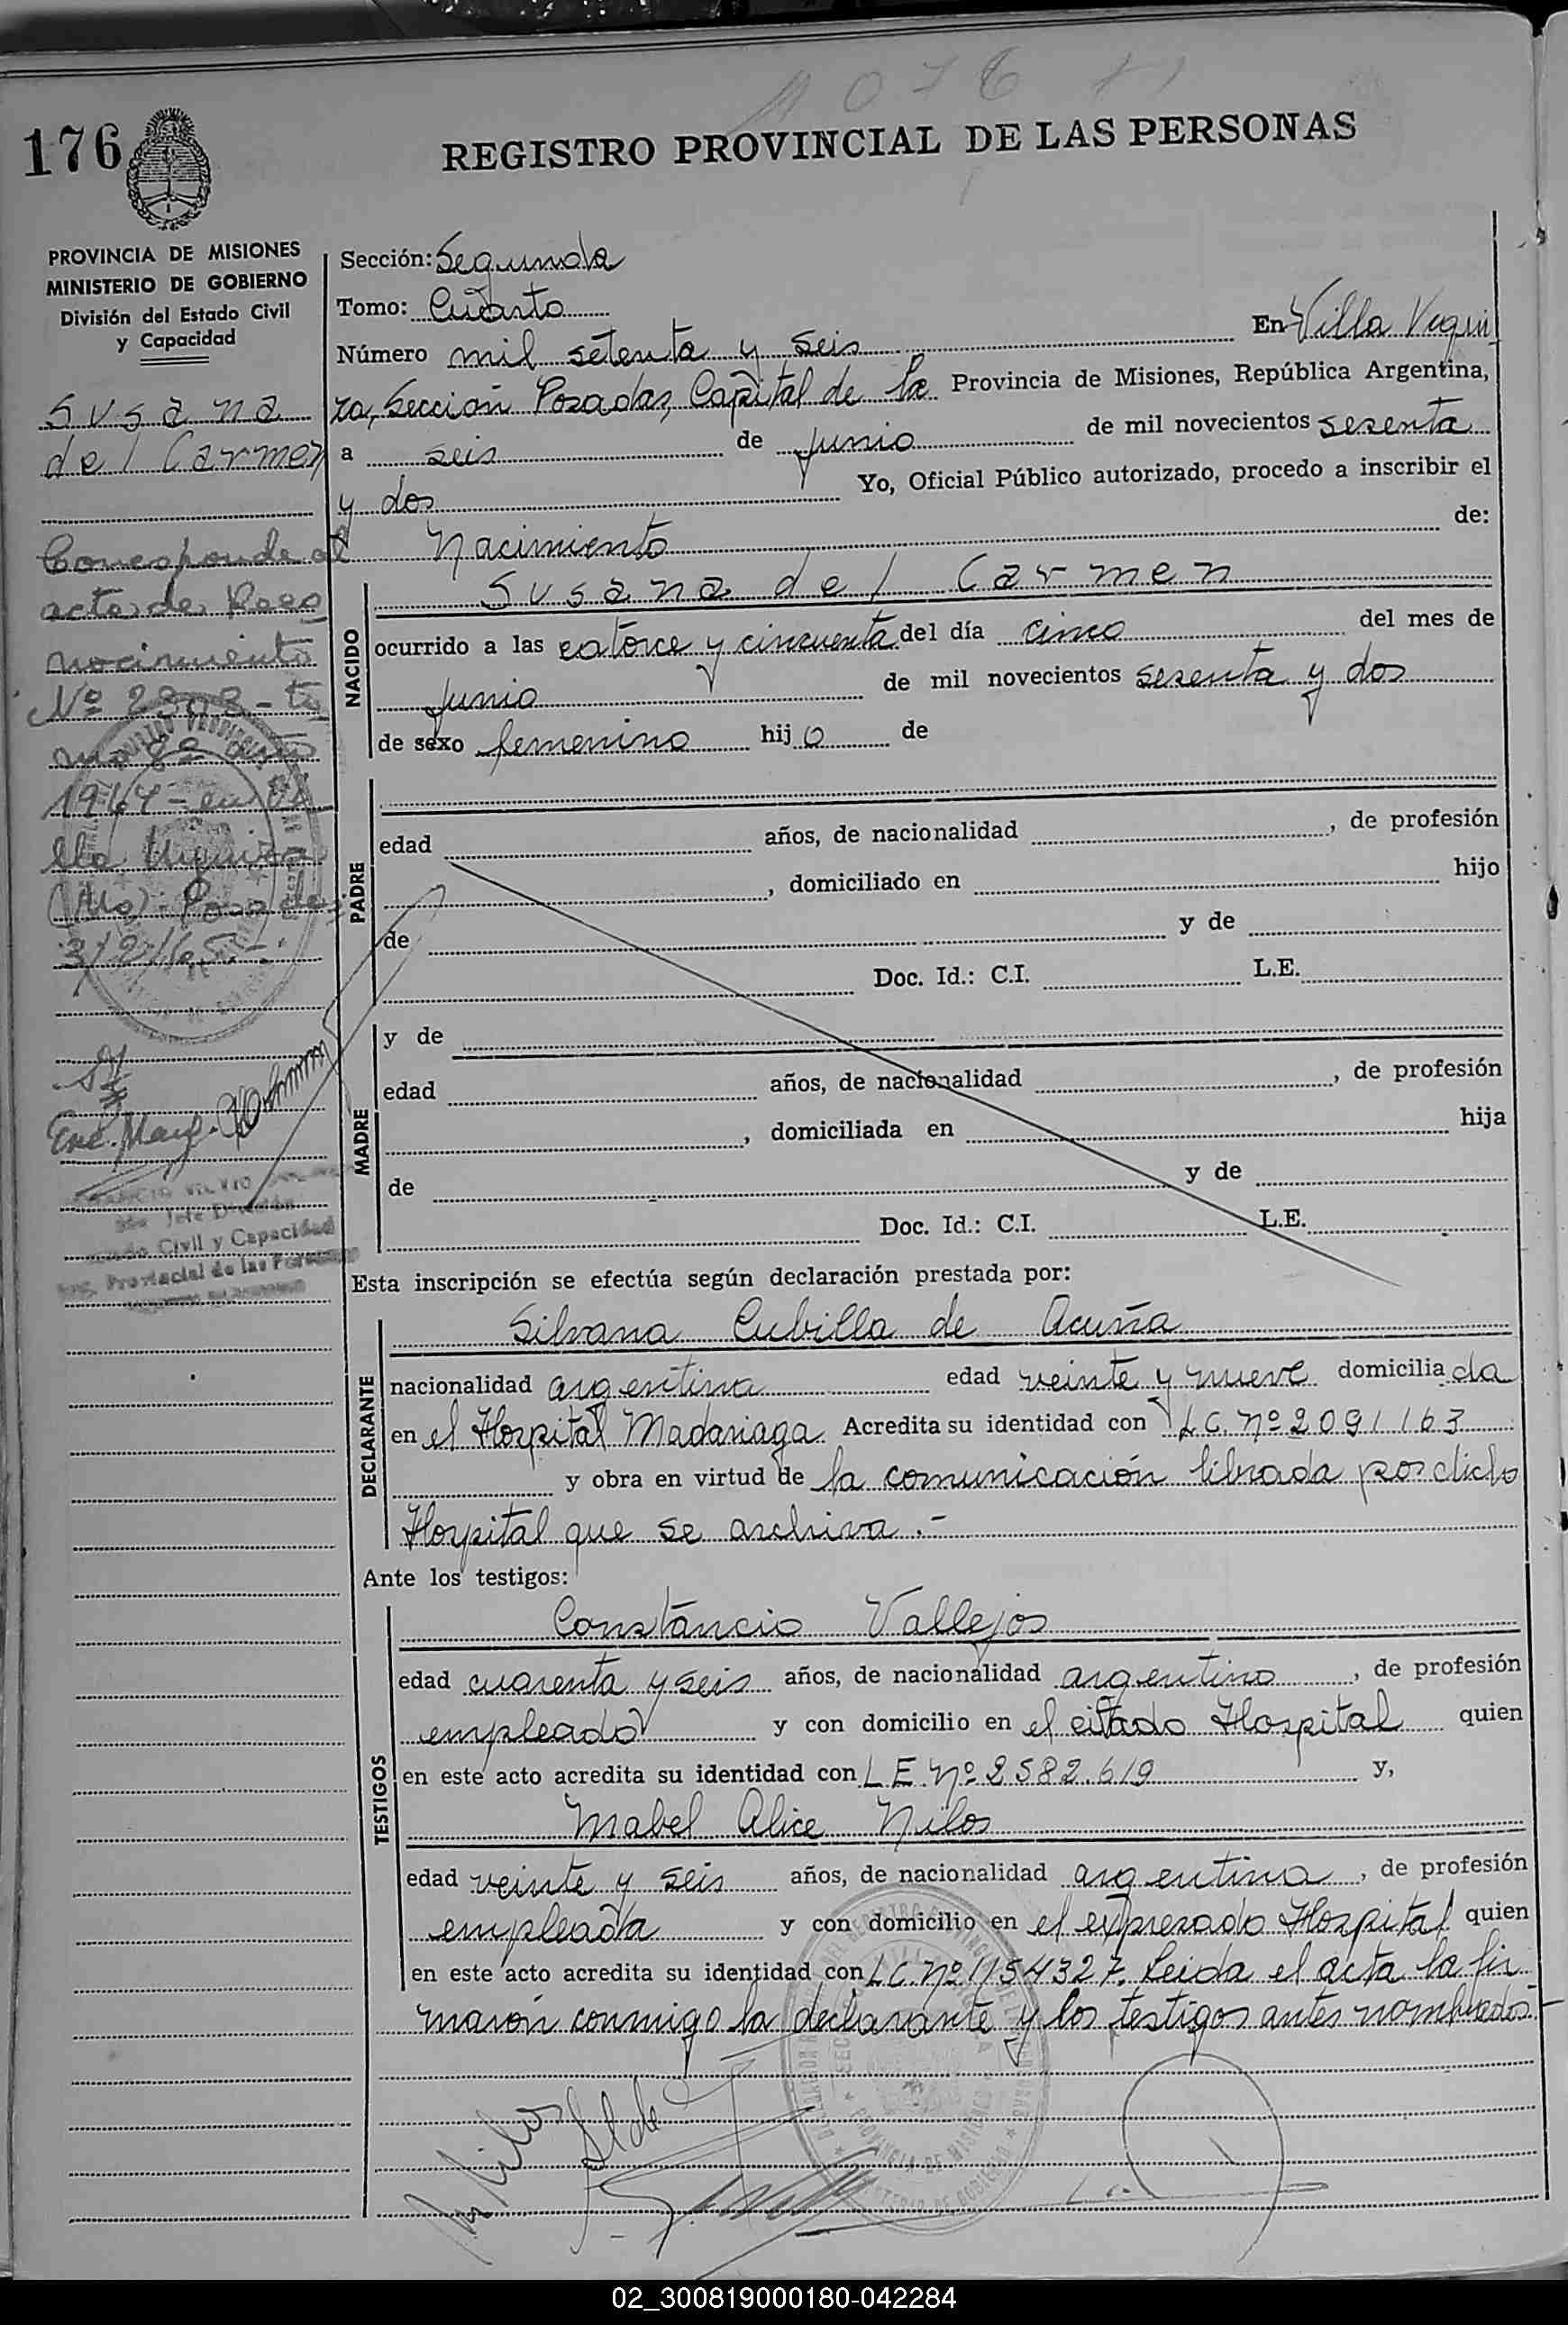 1076
176
REGISTRO PROVINCIAL DE LAS PERSONAS
PROVINCIA DE MISIONES
MINISTERIO DE GOBIERNO
División del Estado Civil
y Capacidad
Susana
del Carmen
Corresponde al
acta de Reco
nocimiento
1964 - en Vi
lla Urquiza
Posadas
3/2/65.-
Civil y Capacidad
Reg. Provincial de las Personas
Sección: Segunda
Tomo: Cuarto
Número mil setenta y seis En Villa Urqui
za, Sección Posadas, Capital de la Provincia de Misiones, República Argentina,
a seis de junio de mil novecientos sesenta
y dos Yo, Oficial Público autorizado, procedo a inscribir el
Nacimiento de:
NACIDO
Susana del Carmen
ocurrido a las catorce y cincuenta del día cinco del mes de
junio de mil novecientos sesenta y dos
de sexo femenino hijo de
PADRE
edad años, de nacionalidad , de profesión
, domiciliado en hijo
de y de
Doc. Id.: C.I. L.E.
MADRE
y de
edad años, de nacionalidad , de profesión
, domiciliada en hija
de y de
Doc. Id.: C.I. L.E.
Esta inscripción se efectúa según declaración prestada por:
DECLARANTE
Silvana Cubilla de Acuña
nacionalidad argentina edad veinte y nueve domiciliada
en el Hospital Madariaga Acredita su identidad con L.C. Nº 2091163
y obra en virtud de la comunicación librada por dicho
Hospital que se archiva.-
Ante los testigos:
TESTIGOS
Constancio Vallejos
edad cuarenta y seis años, de nacionalidad argentino, de profesión
empleado y con domicilio en el citado Hospital quien
en este acto acredita su identidad con L E Nº 2582.619 y,
Mabel Alice Nilos
edad veinte y seis años, de nacionalidad argentina, de profesión
empleada y con domicilio en el expresado Hospital quien
en este acto acredita su identidad con L.C. Nº 1154327. Leida el acta la fir
maron conmigo la declarante y los testigos antes nombrados.-
02_300819000180-042284